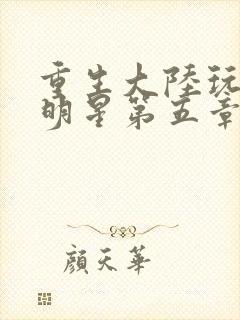 重生大陸玩
明星第五章
顏天華